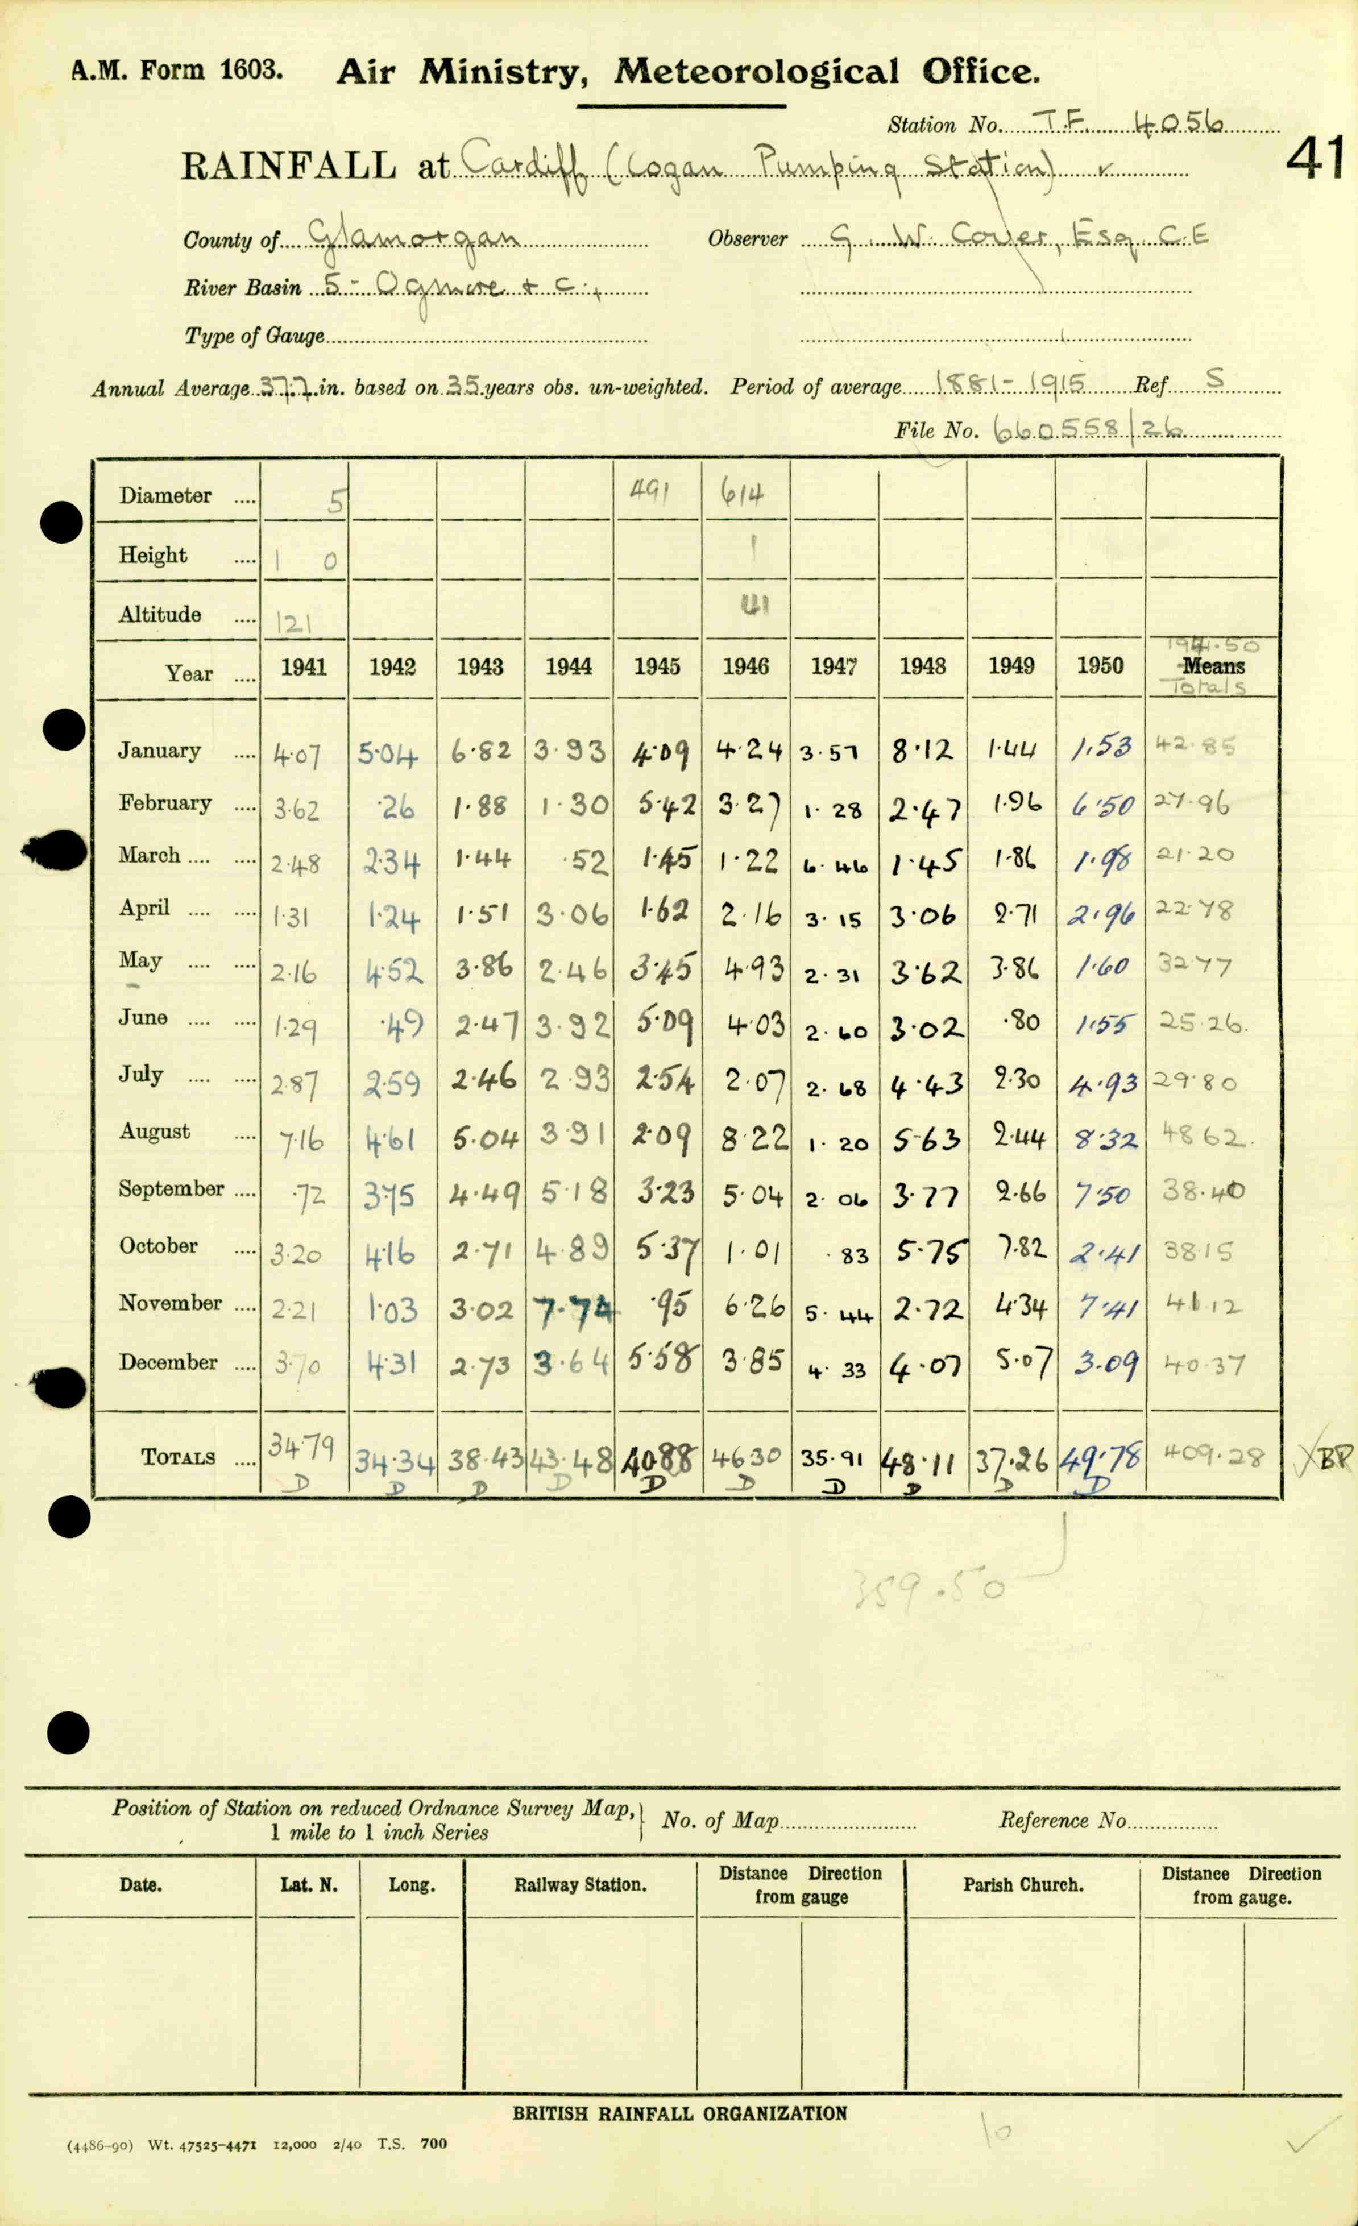 A.M. Form 1603. Air Ministry, Meteorological Office.
Station No. T.F. 4056
41
RAINFALL at Cardiff (Cogan Pumping Station) ✓
County of Glamorgan Observer G. W. Cover, Esq. C.E
River Basin 5 - Ogmore + C.
Type of Gauge
Annual Average 37.7 in. based on 35 years obs. un-weighted. Period of average 1881-1915 Ref S
File No. 660558/26
Diameter .... 5 491 614
Height .... 1 0 1
Altitude .... 121 41
1941.50
Year .... 1941 1942 1943 1944 1945 1946 1947 1948 1949 1950 Means
Totals
January .... 4.07 5.04 6.82 3.93 4.09 4.24 3.57 8.12 1.44 1.53 42.85
February .... 3.62 .26 1.88 1.30 5.42 3.27 1.28 2.47 1.96 6.50 27.96
March .... .... 2.48 2.34 1.44 .52 1.45 1.22 6.46 1.45 1.86 1.98 21.20
April .... .... 1.31 1.24 1.51 3.06 1.62 2.16 3.15 3.06 2.71 2.96 22.78
May .... .... 2.16 4.52 3.86 2.46 3.45 4.93 2.31 3.62 3.86 1.60 32.77
June .... .... 1.29 .49 2.47 3.92 5.09 4.03 2.60 3.02 .80 1.55 25.26
July .... .... 2.87 2.59 2.46 2.93 2.54 2.07 2.68 4.43 2.30 4.93 29.80
August .... 7.16 4.61 5.04 3.91 2.09 8.22 1.20 5.63 2.44 8.32 48.62
September .... .72 3.75 4.49 5.18 3.23 5.04 2.06 3.77 2.66 7.50 38.40
October .... 3.20 4.16 2.71 4.89 5.37 1.01 .83 5.75 7.82 2.41 38.15
November .... 2.21 1.03 3.02 7.74 .95 6.26 5.44 2.72 4.34 7.41 41.12
December .... 3.70 4.31 2.73 3.64 5.58 3.85 4.33 4.07 5.07 3.09 40.37
TOTALS .... 34.79 34.34 38.43 43.48 40.88 46.30 35.91 48.11 37.26 49.78 409.28 BP
D D D D D D D D D D
359.50
Position of Station on reduced Ordnance Survey Map, No. of Map Reference No.
1 mile to 1 inch Series
Date. Lat. N. Long. Railway Station. Distance Direction from gauge Parish Church. Distance Direction from gauge.
BRITISH RAINFALL ORGANIZATION
10 ✓
(4486-90) Wt. 47525-4471 12,000 2/40 T.S. 700